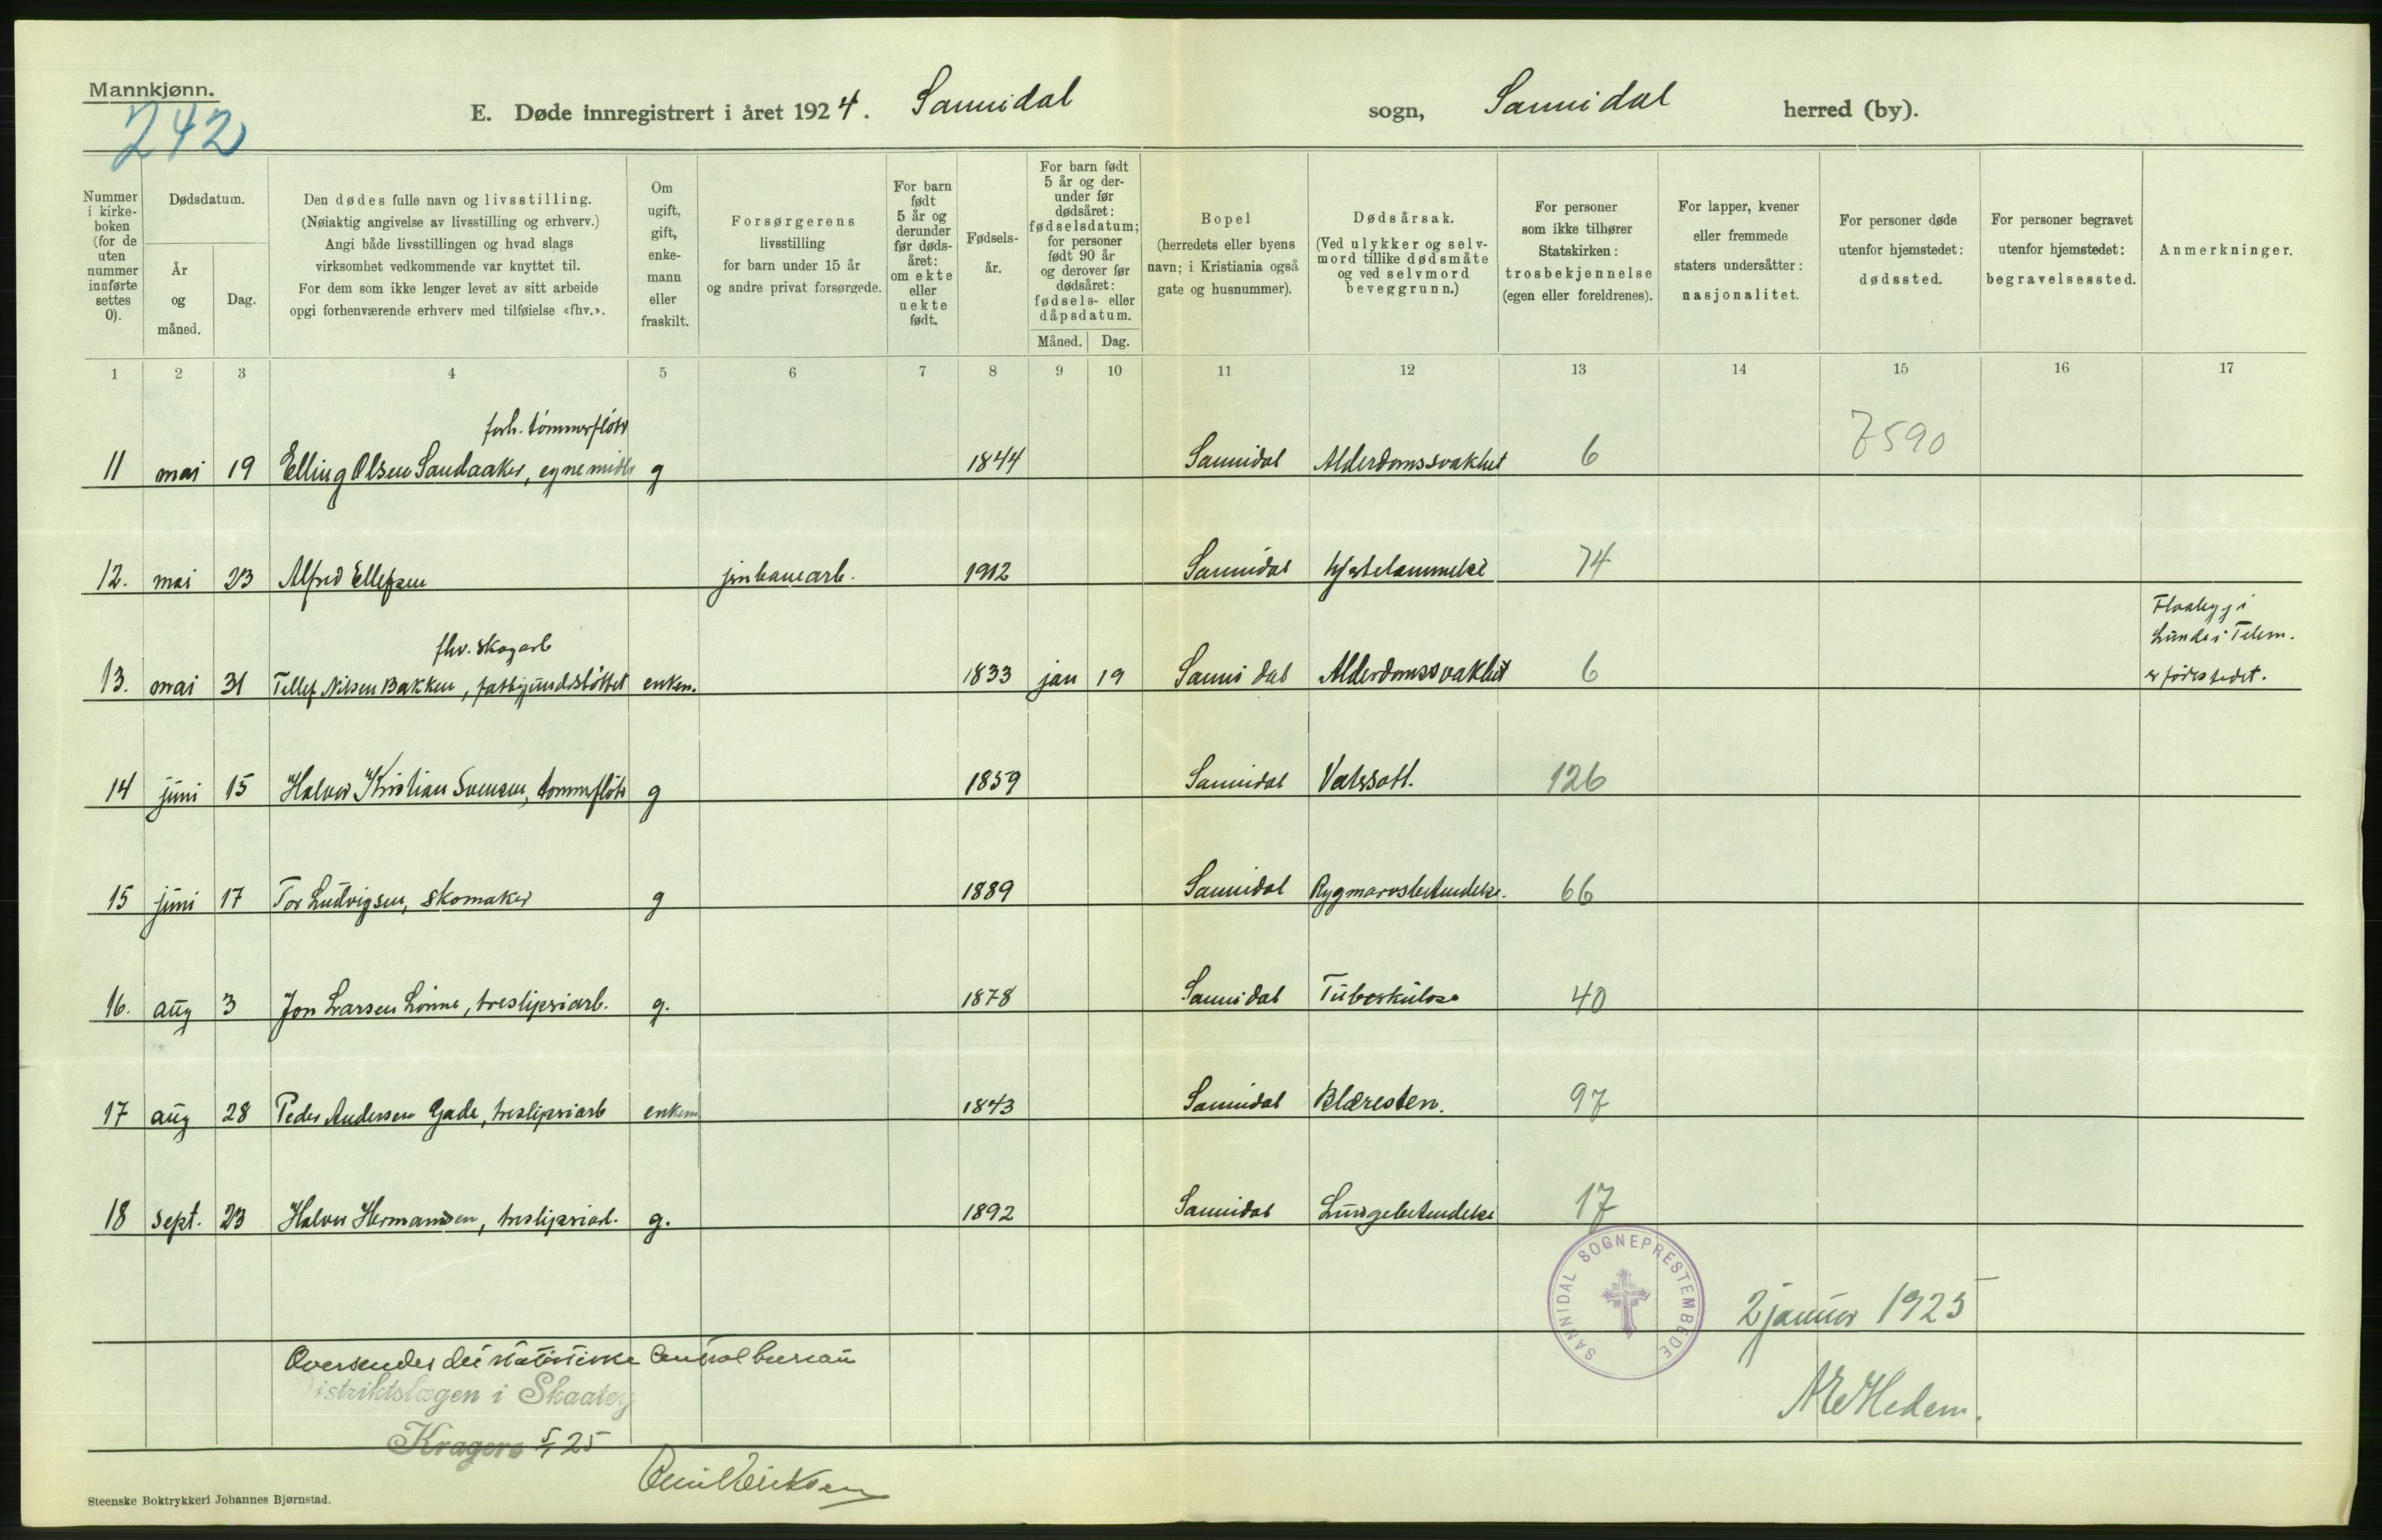 Mannkjønn.
242
E. Døde innregistrert i året 1924. Sannidal sogn, Sannidal herred (by).
Nummer i kirkeboken (for de uten nummer innførte settes 0).
Dødsdatum.
År og måned.
Dag.
Den dødes fulle navn og livsstilling.
(Nøiaktig angivelse av livsstilling og erhverv.)
Angi både livsstillingen og hvad slags
virksomhet vedkommende var knyttet til.
For dem som ikke lenger levet av sitt arbeide
opgi forhenværende erhverv med tilføielse «fhv.».
Om ugift, gift, enkemann eller fraskilt.
Forsørgerens
livsstilling
for barn under 15 år
og andre privat forsørgede.
For barn født 5 år og derunder før dødsåret: om ekte eller uekte født.
Fødselsår.
For barn født 5 år og derunder før dødsåret: fødselsdatum; for personer født 90 år og derover før dødsåret: fødsels- eller dåpsdatum.
Måned. Dag.
Bopel
(herredets eller byens
navn; i Kristiania også
gate og husnummer).
Dødsårsak.
(Ved ulykker og selvmord tillike dødsmåte og ved selvmord beveggrunn.)
For personer
som ikke tilhører
Statskirken:
trosbekjennelse
(egen eller foreldrenes).
For lapper, kvener
eller fremmede
staters undersåtter:
nasjonalitet.
For personer døde
utenfor hjemstedet:
dødssted.
For personer begravet
utenfor hjemstedet:
begravelsessted.
Anmerkninger.
1 2 3 4 5 6 7 8 9 10 11 12 13 14 15 16 17
forh. tømmerfløter
11 mai 19 Elling Olsen Sandaaker, egne midler g 1844 Sannidal Alderdomssvakhet 6 7590
12. mai 23 Alfred Ellefsen jernbanearb. 1912 Sannidal Hjertelammelse 74
fhv. skogarb
13. mai 31 Tellef Nilsen Bakken, fattigunderstøttet enkem. 1833 jan 19 Sannidal Alderdomssvakhet 6
Flaabygi
Lunde i Telem.
er fødestedet.
14 juni 15 Halvor Kristian Svensen, tømmerfløter g 1859 Sannidal Vatersott. 126
15 juni 17 Tor Ludvigsen, skomaker g 1889 Sannidal Rygmarvsbetendelse. 66
16. aug 3 Jon Larsen Lønne, tresliperiarb. g. 1878 Sannidal Tuberkulose 40
17 aug 28 Peder Andersen Gade, tresliperiarb enkem 1843 Sannidal Blæresten. 97
18 sept. 23 Halvor Hermansen, tresliperiarb. g. 1892 Sannidal Lungebetendelse 17
SANNIDAL SOGNEPRESTEMBEDE
2 januar 1925
Oversendes det statistiske Centralbureau
Distriktslægen i Skaatøy
Kragerø 5/1 25
Emil Eriksen
Steenske Boktrykkeri Johannes Bjørnstad.